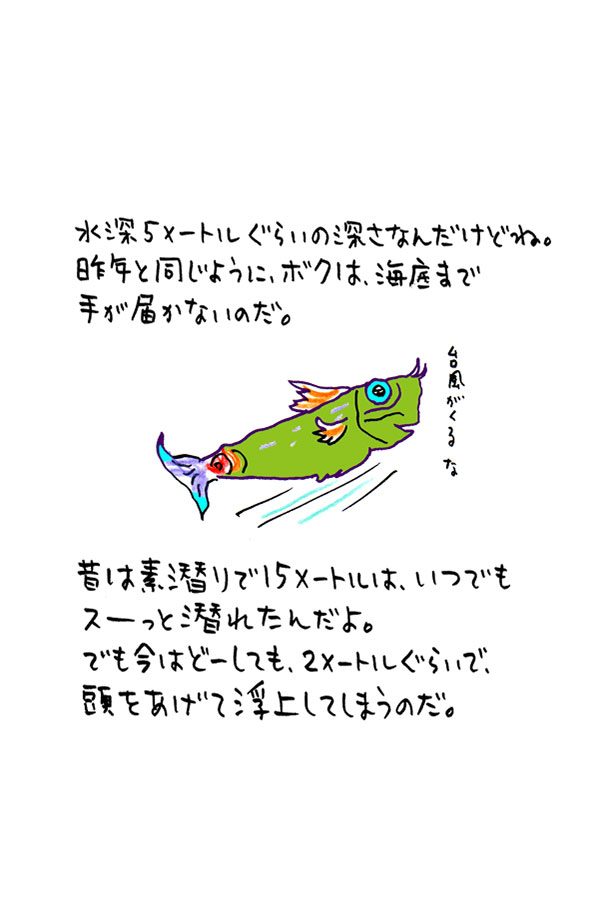 水深5メートルぐらいの深さなんだけどね。
昨年と同じように、ボクは、海底まで
手が届かないのだ。
台風がくるな
昔は素潜りで15メートルは、いつでも
スーっと潜れたんだよ。
でも今はどーしても、2メートルぐらいで、
頭をあげて浮上してしまうのだ。